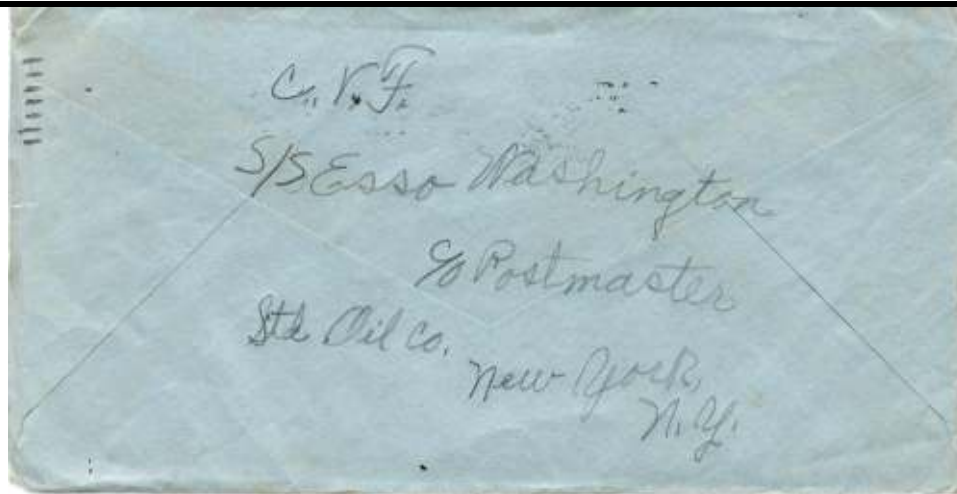 C. V. F.
S/S Esso Washington
c/o Postmaster
Std Oil Co.
New York,
N.Y.